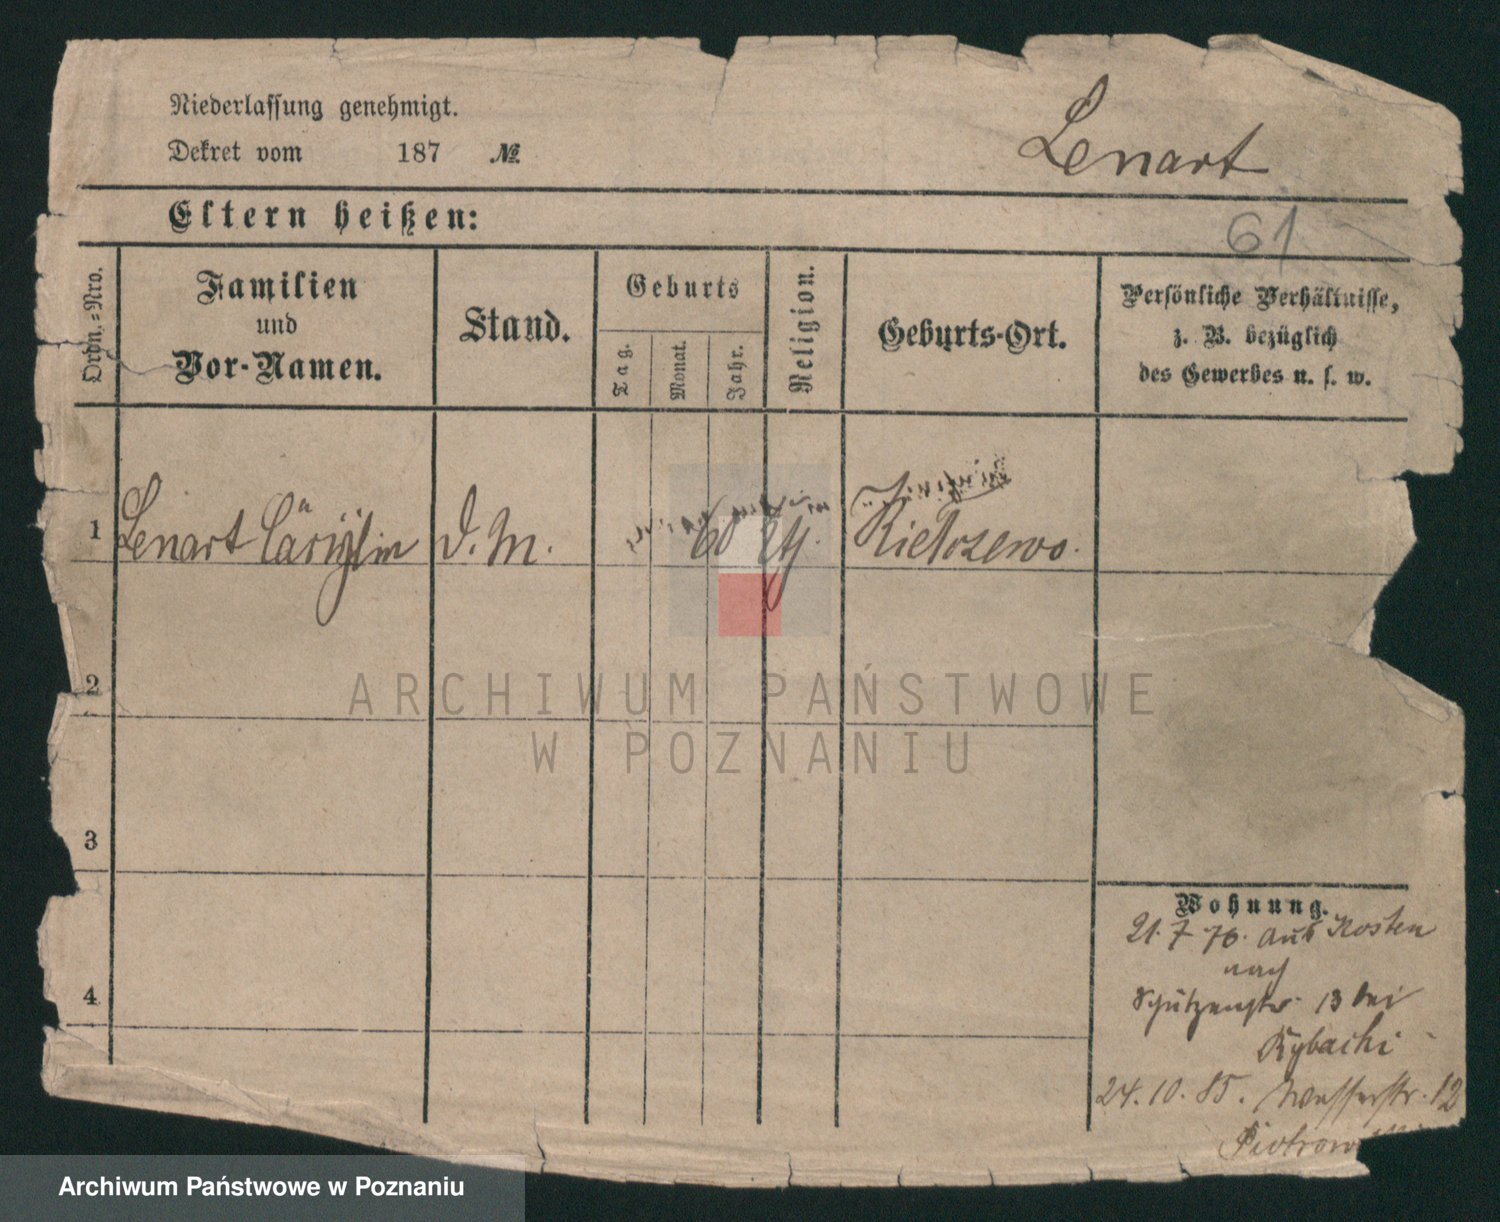 Niederlassung genehmigt.
Dekret vom 187 №
Lenart
Eltern heißen:
61
Ordn.-Nro.
Familien
und
Vor-Namen.
Stand.
Geburts
Tag.
Monat.
Jahr.
Religion.
Geburts-Ort.
Persönliche Verhältnisse,
z. B. bezüglich
des Gewerbes u. s. w.
1 Lenart D. M. 60
2
3
4
Wohnung.
21. 7 76. aus Kosten
nach
Schützenstr. 13 bei
Rybacki
24. 10. 85. Wasserstr. 12
ARCHIWUM PAŃSTWOWE
W POZNANIU
Archiwum Państwowe w Poznaniu